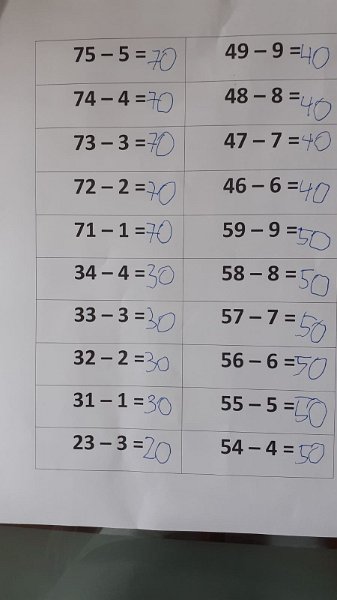 75 – 5 = 70 49 – 9 = 40
74 – 4 = 70 48 – 8 = 40
73 – 3 = 70 47 – 7 = 40
72 – 2 = 70 46 – 6 = 40
71 – 1 = 70 59 – 9 = 50
34 – 4 = 30 58 – 8 = 50
33 – 3 = 30 57 – 7 = 50
32 – 2 = 30 56 – 6 = 50
31 – 1 = 30 55 – 5 = 50
23 – 3 = 20 54 – 4 = 50